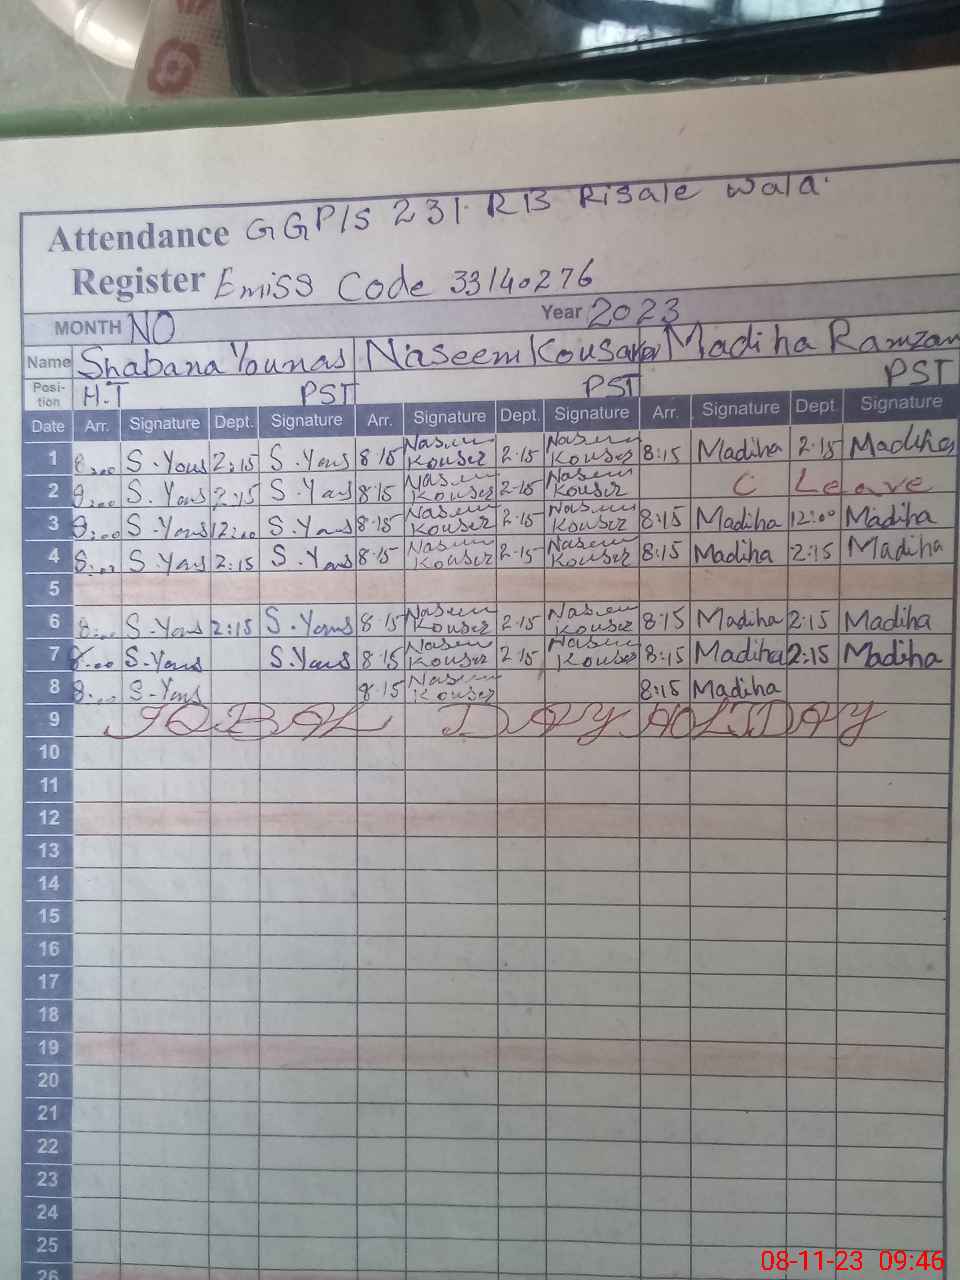 Attendance GGP/S 231 RB Risale wala
Register Emiss Code 33140276
MONTH NO Year 2023
Name Shabana Younas Naseem Kousar Madiha Ramzan
Posi-tion H.T PST PST PST
Date Arr. Signature Dept. Signature Arr. Signature Dept. Signature Arr. Signature Dept. Signature
1 8:00 S.Yous 2:15 S.Yous 8:15 Naseem Kouser 2:15 Naseem Kouser 8:15 Madiha 2:15 Madiha
2 8:00 S.Yous 2:15 S.Yous 8:15 Naseem Kouser 2:15 Naseem Kouser C Leave
3 8:00 S.Yous 12:00 S.Yous 8:15 Naseem Kouser 2:15 Naseem Kouser 8:15 Madiha 12:00 Madiha
4 8:00 S.Yous 2:15 S.Yous 8:15 Naseem Kouser 2:15 Naseem Kouser 8:15 Madiha 2:15 Madiha
5
6 8:00 S.Yous 2:15 S.Yous 8:15 Naseem Kouser 2:15 Naseem Kouser 8:15 Madiha 2:15 Madiha
7 8:00 S.Yous S.Yous 8:15 Naseem Kouser 2:15 Naseem Kouser 8:15 Madiha 2:15 Madiha
8 8:00 S.Yous 8:15 Naseem Kouser 8:15 Madiha
9 IQBAL DAY HOLIDAY
10
11
12
13
14
15
16
17
18
19
20
21
22
23
24
25
26
08-11-23 09:46